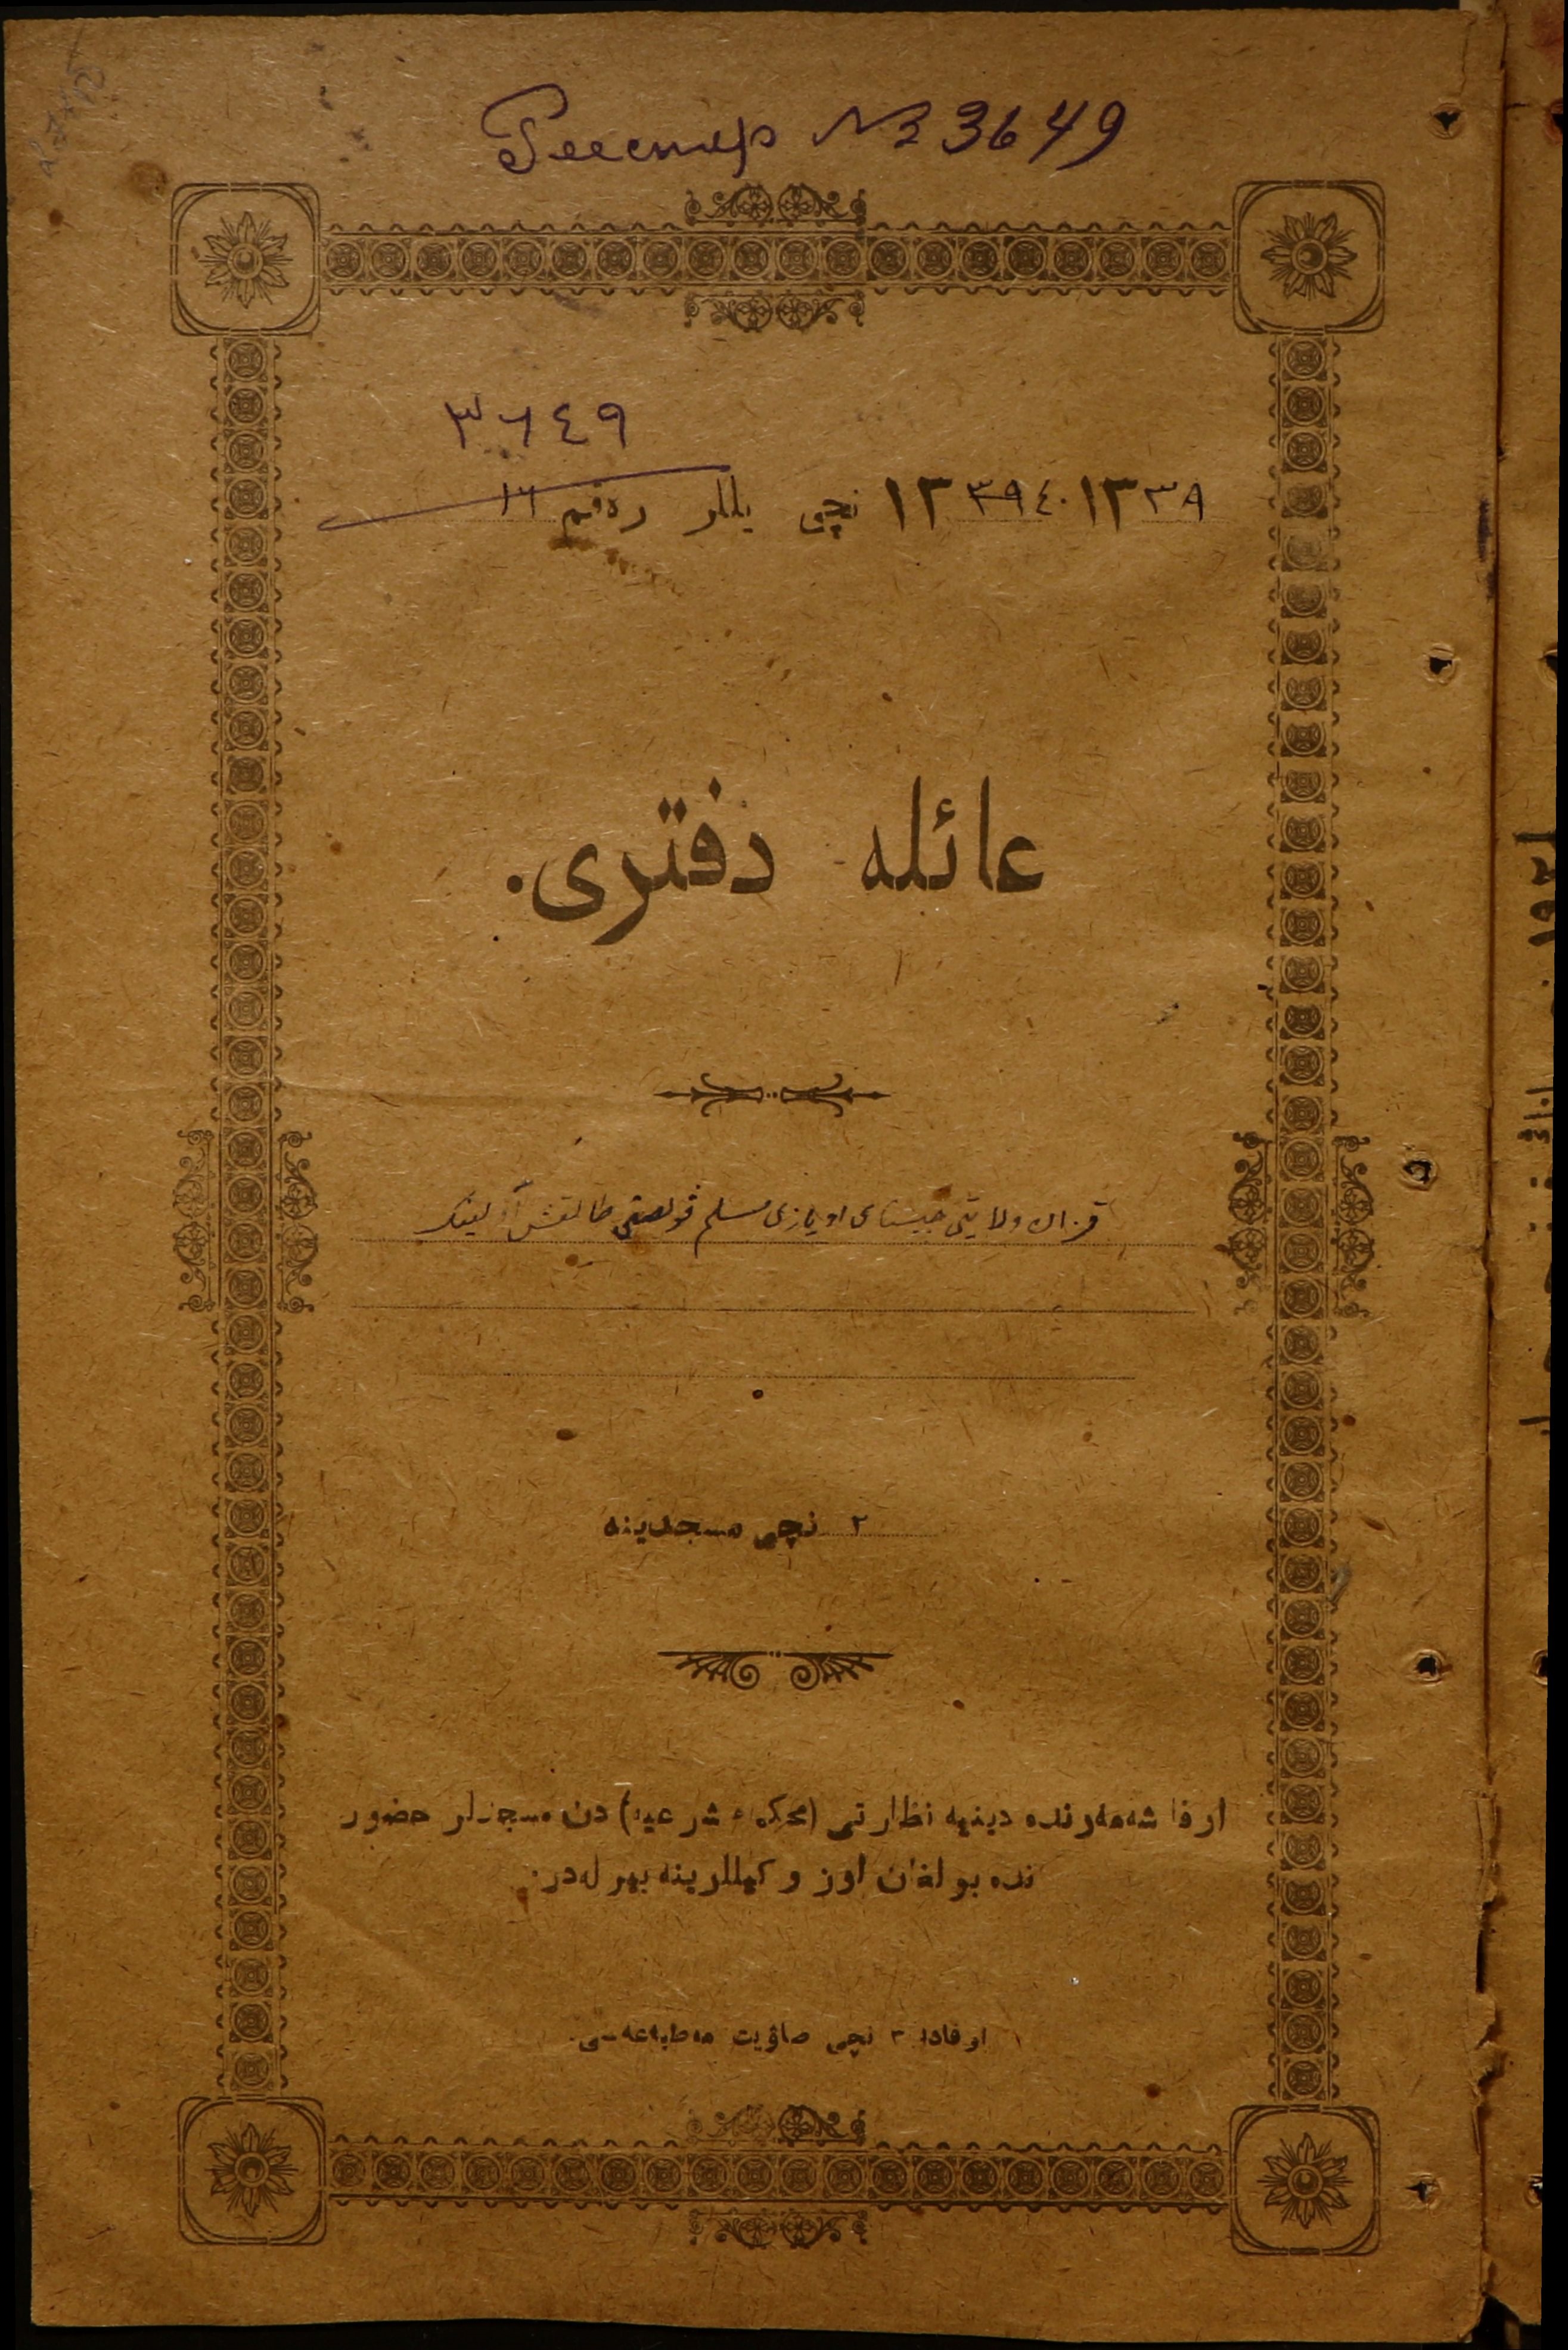 Реестр № 3649
٣٦٤٩
١٣٣٩ ١٣٣٩٤٠ نچی یللر رەقم ١٦
عائله دفتری.
قزان ولایتی چیستای اویازی مسلم ڤولصتی
٢ نچی مسجدینه
اوفا شەهەرندە دینیه نظارتی (محکمهٔ شرعیه) دن مسجدلر حضور
ندە بولغان اوز وکیللرینه بیرلەدر.
اوفادا ٣ نچی صاۋیت مەطبەعەسی.